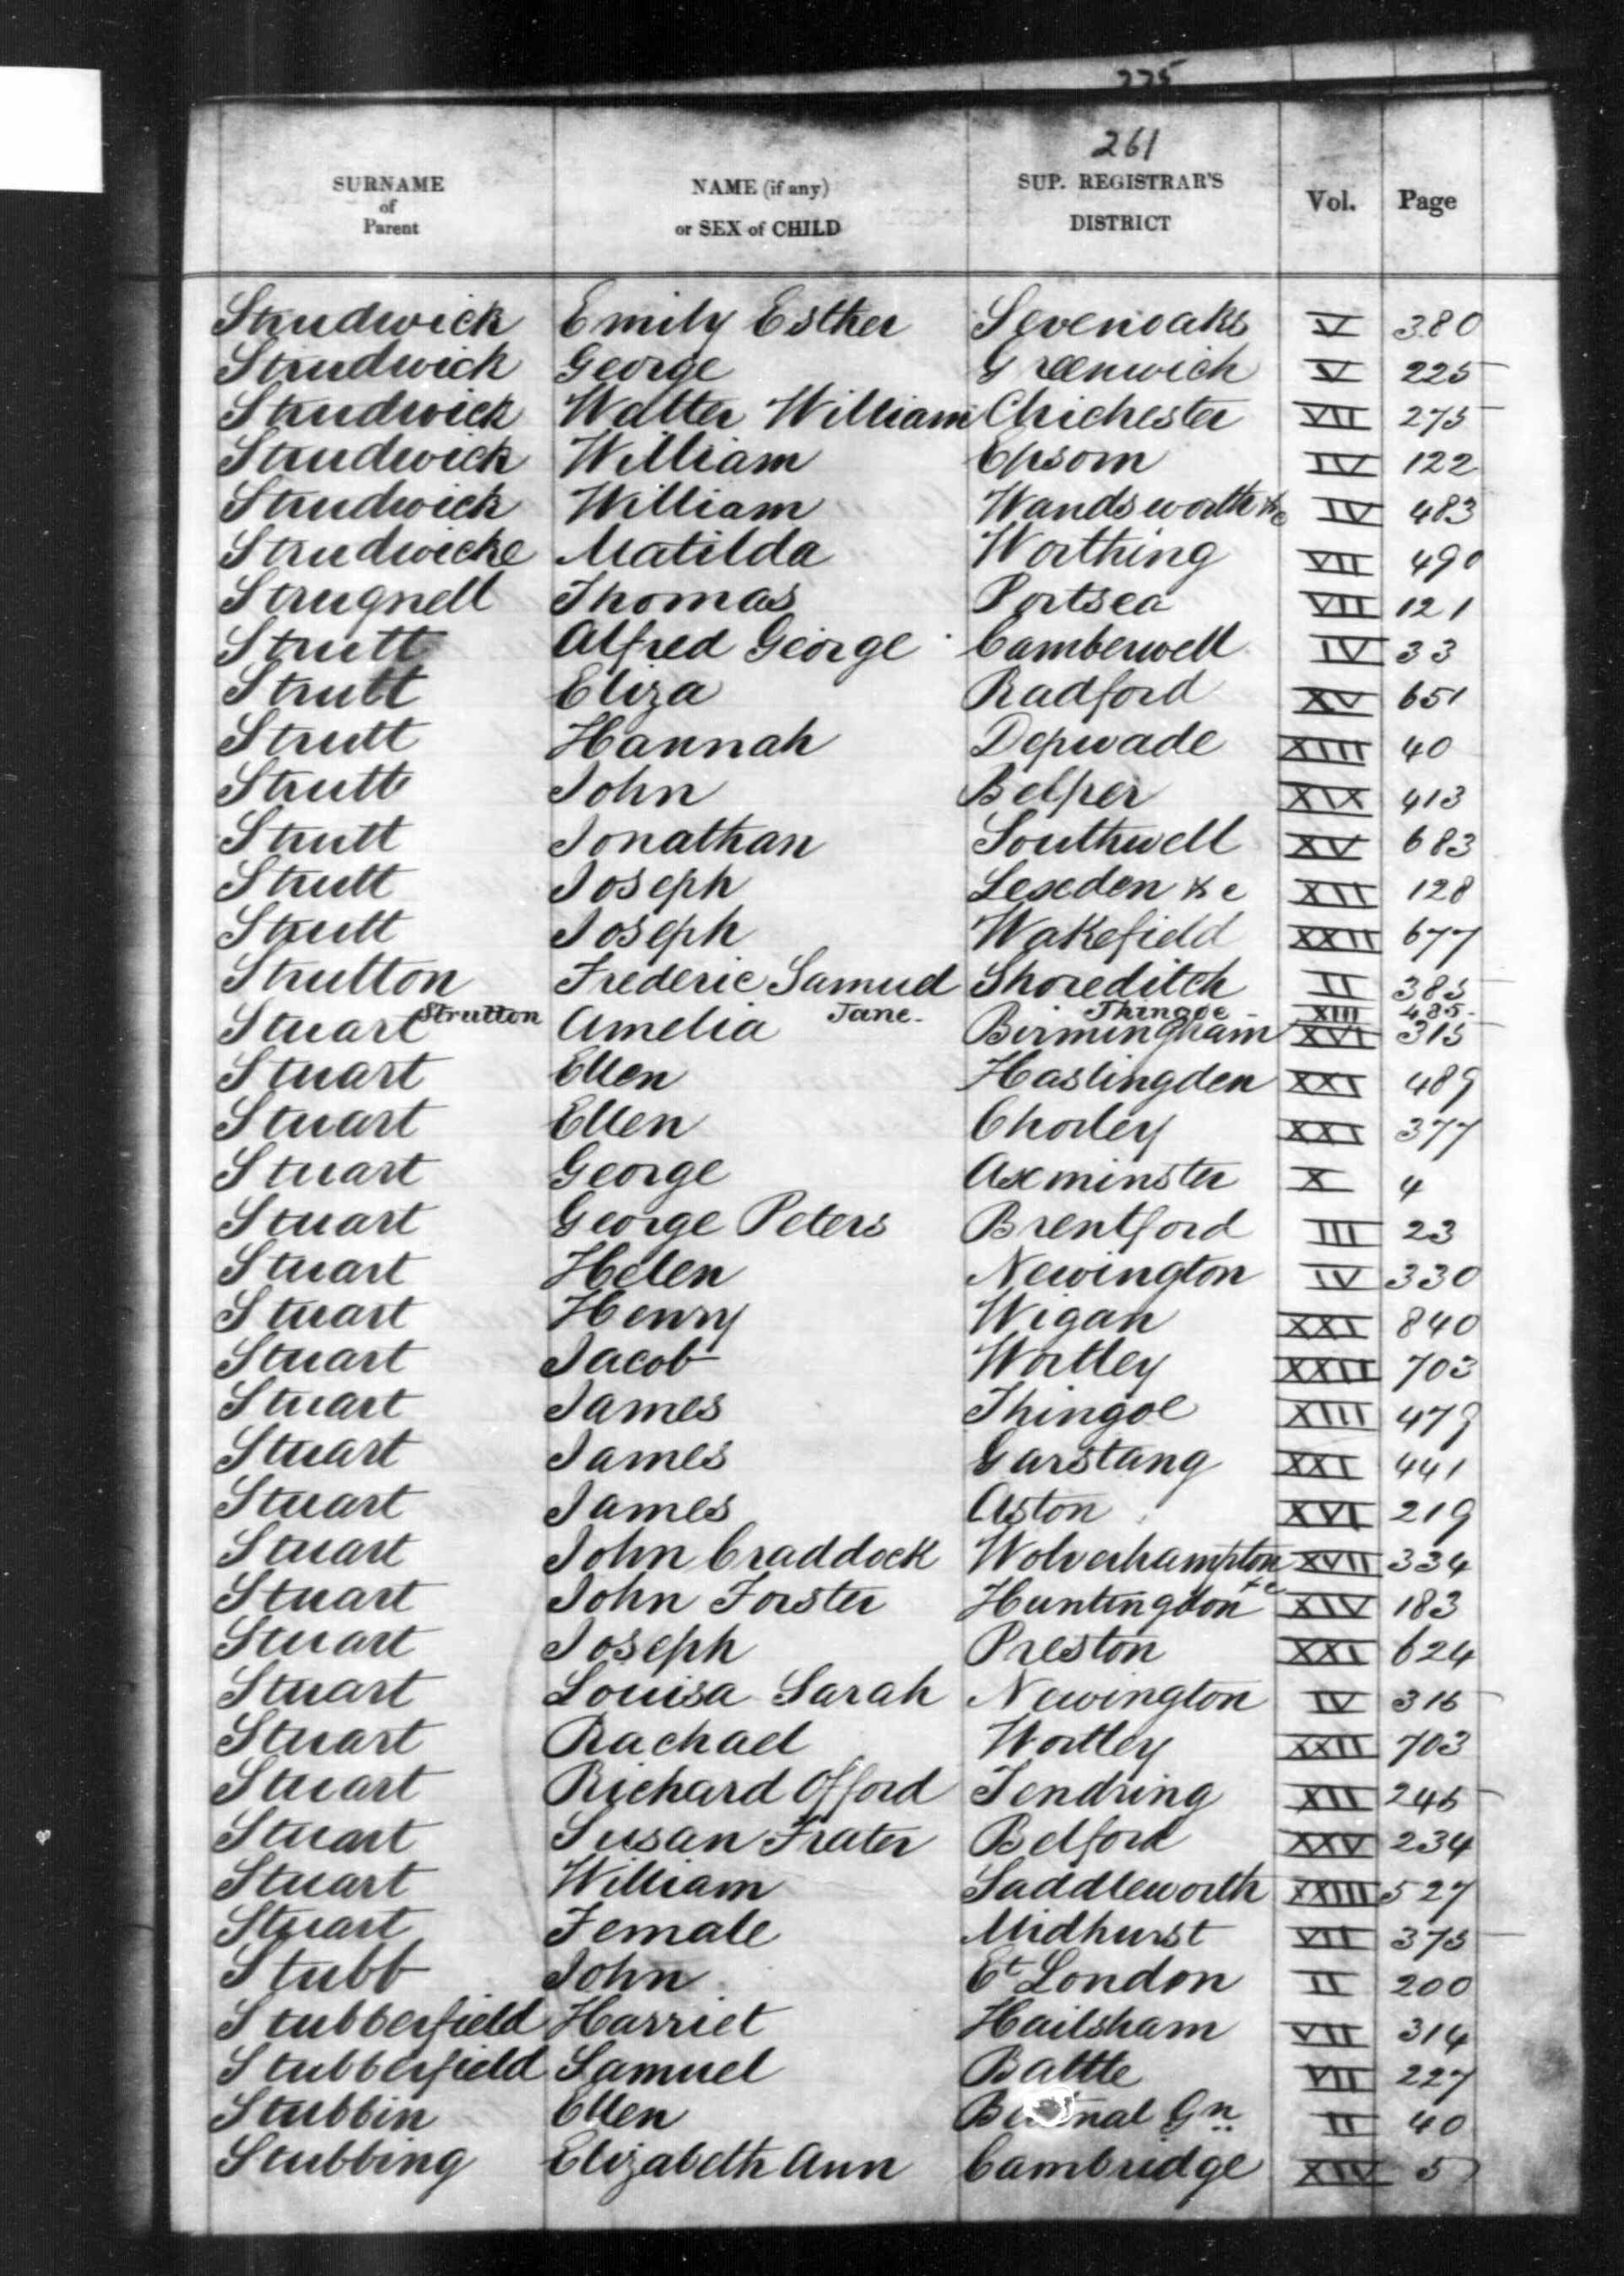 275
261
SURNAME of Parent NAME (if any) or SEX of CHILD SUP. REGISTRAR'S DISTRICT Vol. Page
Strudwick Emily Esther Sevenoaks V 380
Strudwick George Greenwich V 225
Strudwick Walter William Chichester VII 275
Strudwick William Epsom IV 122
Strudwick William Wandsworth &c IV 483
Strudwicke Matilda Worthing VII 490
Strugnell Thomas Portsea VII 121
Strutt Alfred George Camberwell IV 33
Strutt Eliza Radford XV 651
Strutt Hannah Depwade XIII 40
Strutt John Belper XIX 413
Strutt Jonathan Southwell XV 683
Strutt Joseph Lexden &c XII 128
Strutt Joseph Wakefield XXII 677
Strutton Frederic Samuel Shoreditch II 385
Strutton Jane Thingoe XIII 485
Stuart Amelia Birmingham XVI 315
Stuart Ellen Haslingden XXI 489
Stuart Ellen Chorley XXI 377
Stuart George Axminster X 4
Stuart George Peters Brentford III 23
Stuart Helen Newington IV 330
Stuart Henry Wigan XXI 840
Stuart Jacob Wortley XXII 703
Stuart James Thingoe XIII 479
Stuart James Garstang XXI 441
Stuart James Aston XVI 219
Stuart John Craddock Wolverhampton XVII 334
Stuart John Forster Huntingdon &c XIV 183
Stuart Joseph Preston XXI 624
Stuart Louisa Sarah Newington IV 316
Stuart Rachael Wortley XXII 703
Stuart Richard Offord Tendring XII 246
Stuart Susan Frater Belford XXV 234
Stuart William Saddleworth XXIII 527
Stuart Female Midhurst VII 375
Stubb John Et London II 200
Stubberfield Harriet Hailsham VII 314
Stubberfield Samuel Battle VII 227
Stubbin Ellen Gn II 40
Stubbing Elizabeth Ann Cambridge XIV 5